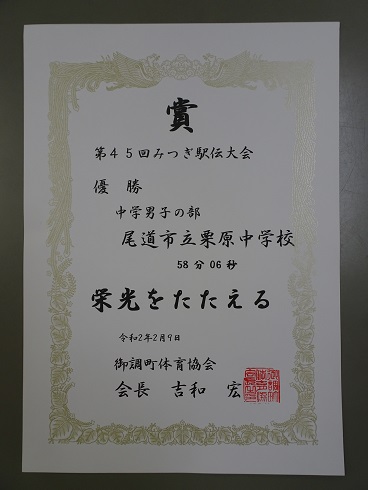 賞
第45回みつぎ駅伝大会
優勝
中学男子の部
尾道市立栗原中学校
58分06秒
栄光をたたえる
令和2年2月9日
御調町体育協会
会長 吉和 宏